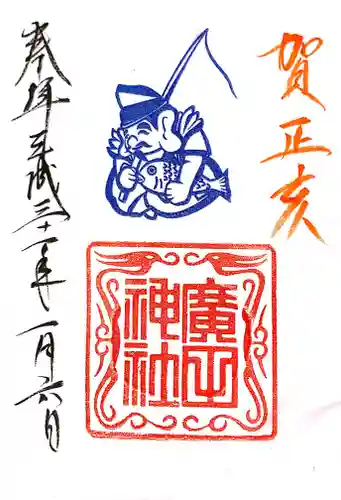 賀正 亥
廣田
神社
奉拝 平成三十一年一月六日